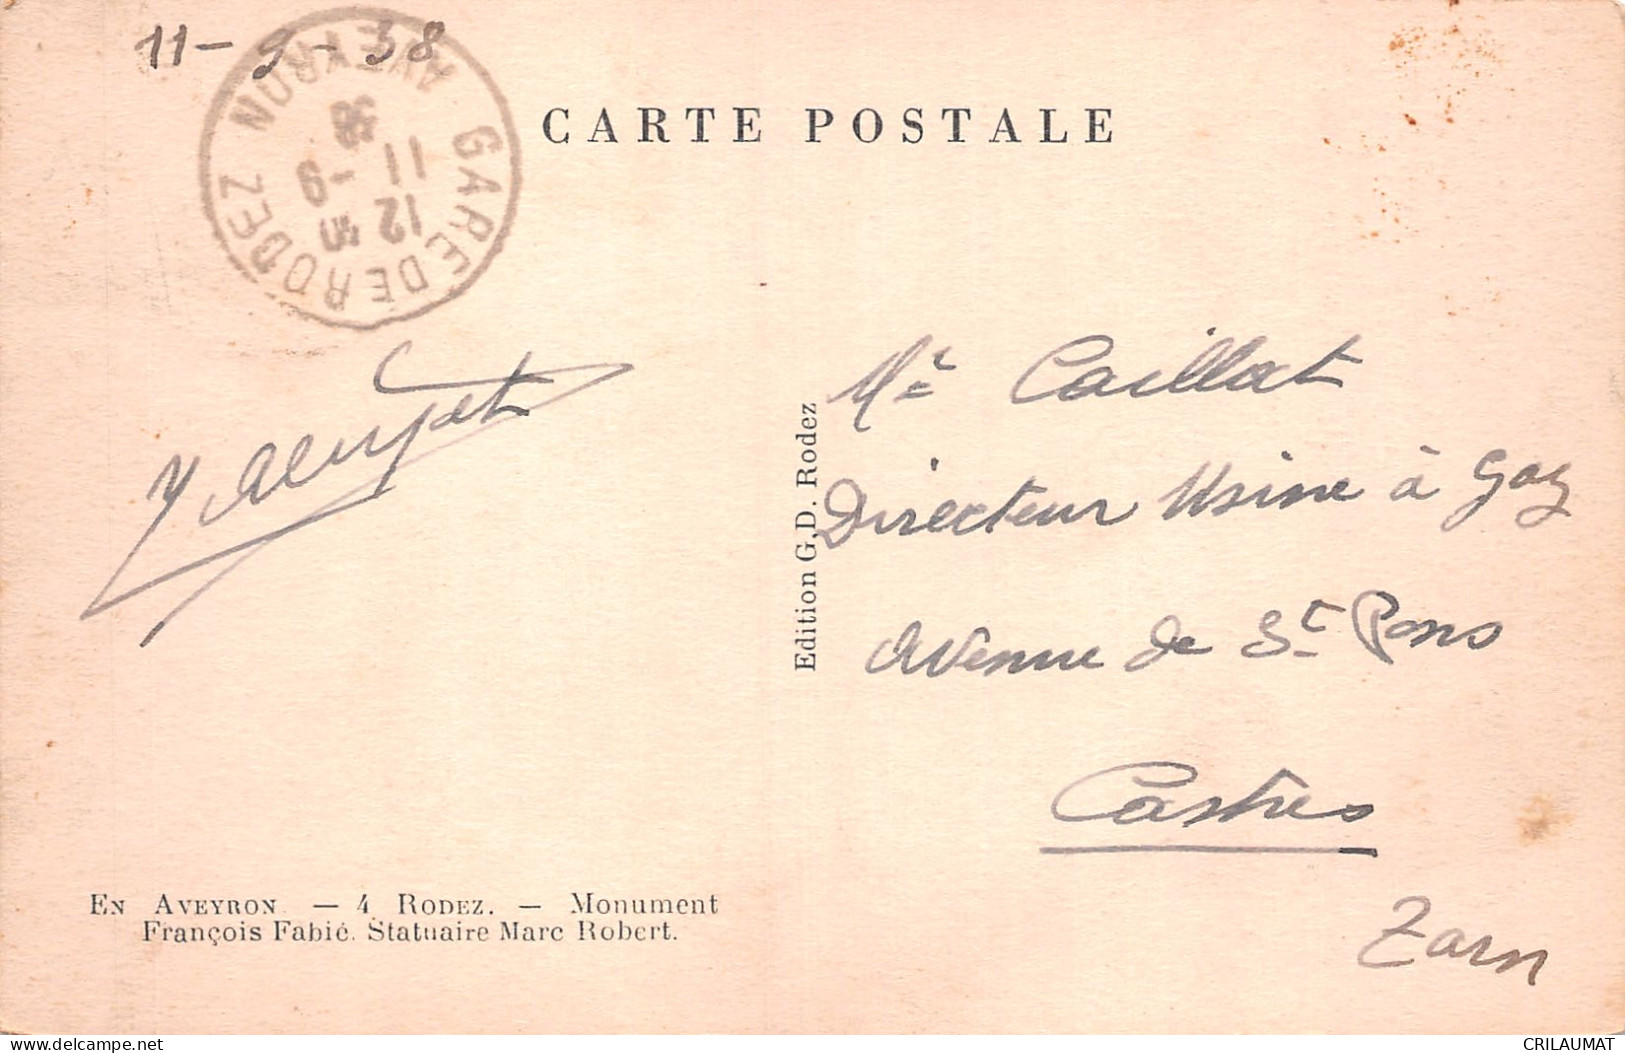 11-9-38
CARTE POSTALE
GARE DE RODEZ AVEYRON
12
11 -9
38
Mr Caillat
Directeur Usine à Gaz
Avenue de St Pons
Castres
Tarn
Edition G. D. Rodez
EN AVEYRON — 4 RODEZ. — Monument
François Fabié. Statuaire Marc Robert.
delcampe.net
CRILAUMAT